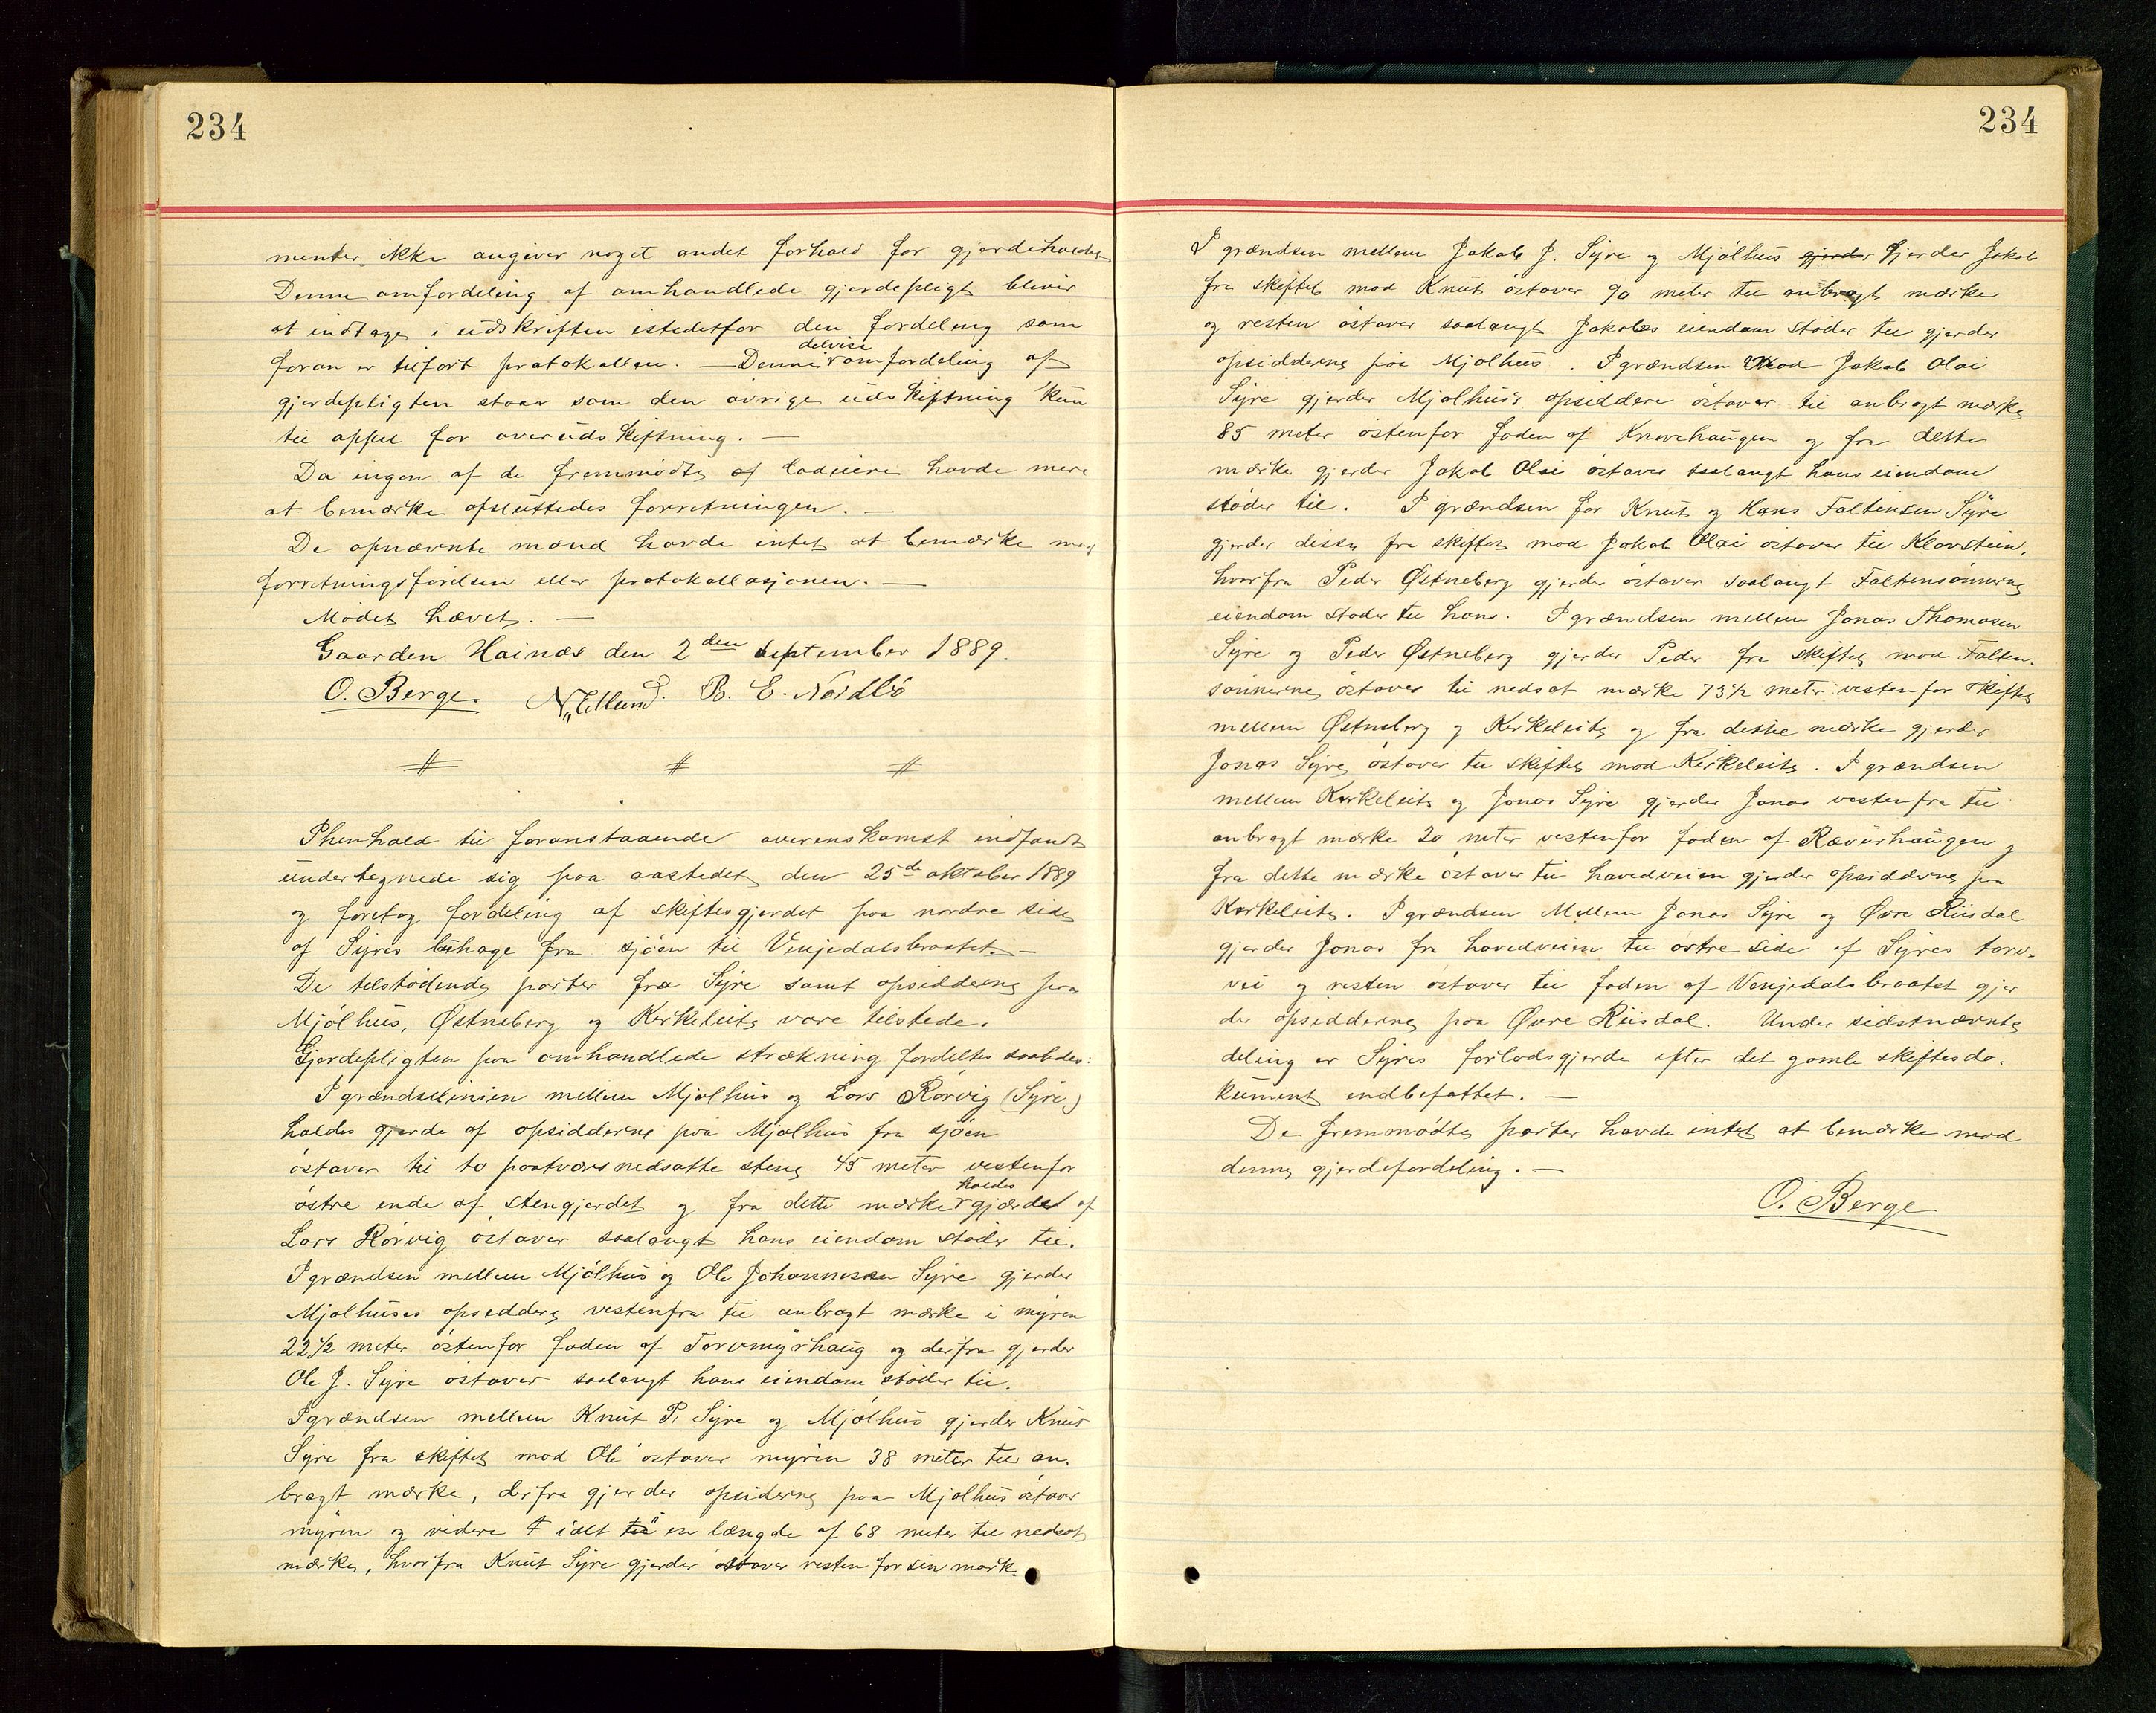 234
menter ikke angiver noget andet forhold for gjerdeholdet
Denne omfordeling af omhandlede gjerdepligt bliver
at indtage i udskriften istedetfor den fordeling som
foran er tilført protokollen. — Denne delvise omfordeling af
gjerdepligten staar som den øvrige udskiftning kun
til appel for overudskiftning. —
Da ingen af de fremmødte af lodeiere havde mere
at bemærke afsluttedes forretningen. —
De opnævnte mænd havde intet at bemærke mod
forretningsførelsen eller protokollasjonen. —
Mødet hævet. —
Gaarden Hainæs den 2den september 1889.
O. Berge. N. Edlund. B. E. Nordbø
# # #
I henhold til foranstaaende overenskomst indfandt
undertegnede sig paa aastedet den 25de oktober 1889
og foretog fordeling af skiftesgjerdet paa nordre side
af Syres buhage fra sjøen til Venjedalsbraatet. —
De tilstødende parter fra Syre samt opsidderne paa
Mjølhus, Østneberg og Kirkeleite vare tilstede.
Gjerdepligten paa omhandlede strækning fordeltes saaledes:
I grændselinien mellem Mjølhus og Lars Rørvig (Syre)
holdes gjerde af opsidderne paa Mjølhus fra sjøen
østover til to paatværsnedsatte stene 45 meter vestenfor
østre ende af stengjerdet og fra dette mærke holdes gjærdet af
Lars Rørvig østover saalangt hans eiendom støder til.
I grændsen mellem Mjølhus og Ole Johannesen Syre gjerder
Mjølhuses opsiddere vestenfra til anbragt mærke i myren
22 1/2 meter østenfor foden af Torvmyrhaug og derfra gjerder
Ole J. Syre østover saalangt hans eiendom støder til.
I grændsen mellem Knut P. Syre og Mjølhus gjerder Knut
Syre fra skiftet mod Ole østover myren 38 meter til an-
bragt mærke, derfra gjerder opsidderne paa Mjølhus østover
myren og videre i alt til en længde af 68 meter til nedsat
mærke, hvorfra Knut Syre gjerder østover resten for sin mark.
234
I grændsen mellem Jakob J. Syre og Mjølhus gjerder gjerder Jakob
fra skiftet mod Knut østover 90 meter til anbragt mærke
og resten østover saalangt Jakobs eiendom støder til gjerder
opsidderne paa Mjølhus. I grændsen mod Jakob Olai
Syre gjerder Mjølhus's opsiddere østover til anbragt mærke
85 meter østenfor foden af Knarehaugen og fra dette
mærke gjerder Jakob Olai østover saalangt hans eiendom
støder til. I grændsen for Knut og Hans Faltinsen Syre
gjerder disse fra skiftet mod Jakob Olai østover til Klovstein,
hvorfra Peder Østneberg gjerder østover saalangt Faltensønnernes
eiendom støder til hans. I grændsen mellem Jonas Thomasen
Syre og Peder Østneberg gjerder Peder fra skiftet mod Falten-
sønnerne østover til nedsat mærke 73 1/2 meter vestenfor skiftet
mellem Østneberg og Kirkeleite og fra dette mærke gjerder
Jonas Syre østover til skiftet mod Kirkeleite. I grændsen
mellem Kirkeleite og Jonas Syre gjerder Jonas vestenfra til
anbragt mærke 20 meter vestenfor foden af Rævurhaugen og
fra dette mærke østover til hovedveien gjerder opsidderne paa
Kirkeleite. I grændsen mellem Jonas Syre og Øvre Riisdal
gjerder Jonas fra hovedveien til østre side af Syres torv-
vei og resten østover til foden af Venjedalsbraatet gjer
der opsidderne paa Øvre Riisdal. Under sidstnævnte
deling er Syres forlodsgjerde efter det gamle skiftesdo-
kument indbefattet. —
De fremmødte parter havde intet at bemærke mod
denne gjerdefordeling. —
O. Berge